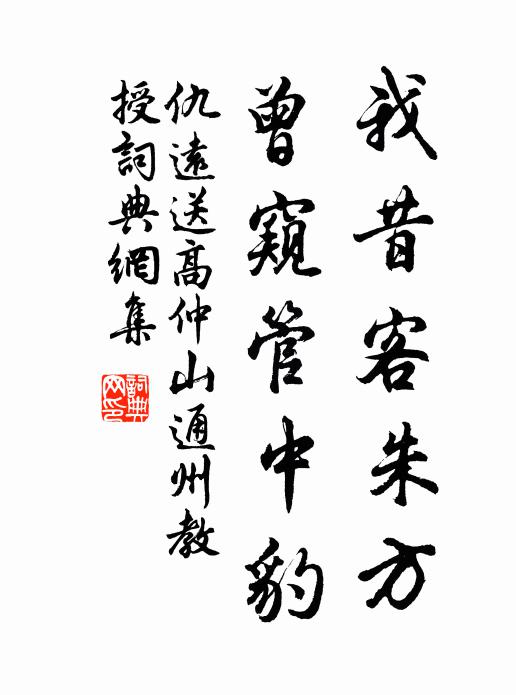 我昔客朱方
曾窺管中豹
仇遠送高仲山通州教
授詞典網集
詞典
网印